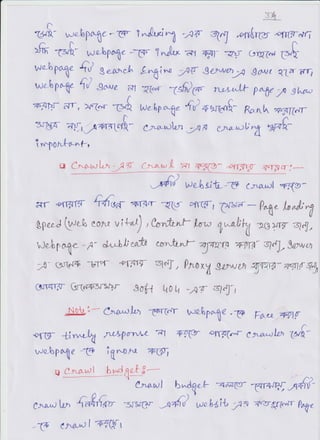 সেই webpage-কে indexing -এর জন্য পাঠাতে পারে না,
যদি সেই webpage -কে index না করা হয় তাহলে সেই
webpage টি search Engine এর server এ save হবে না,
webpage টি save না হলে সেটাকে result page এ show
করাবে না, ফলে সেই webpage টি কখনোই Rank করানো
সম্ভব নয়, একারণেই crawler -এর crawling খুবই
important,
Crawler-এর Crawl না করতে পারার কারণ:-
একটি website-কে crawl করতে
না পারার বিভিন্ন কারণ হতে পারে, যেমন — Page loading
speed (web core vital), Content low quality হওয়ার জন্য,
Webpage-এ dublicate content ব্যবহার করার জন্য, Server
-এ অনেক চাপ পড়ার জন্য, Proxy server ব্যবহার করার জন্য,
আবার অনেকসময় soft 404 -এর জন্য,
Note:- Crawler কোনো webpage -কে Face করার
পরে timely response না করতে পারলে crawler সেই
webpage -কে ignore করে,
Crawl budget:-
Crawl budget বলতে বোঝায়, একটি
crawler নির্ধারিত সময়ে একটি website এর কতগুলো Page
-কে crawl করছে,